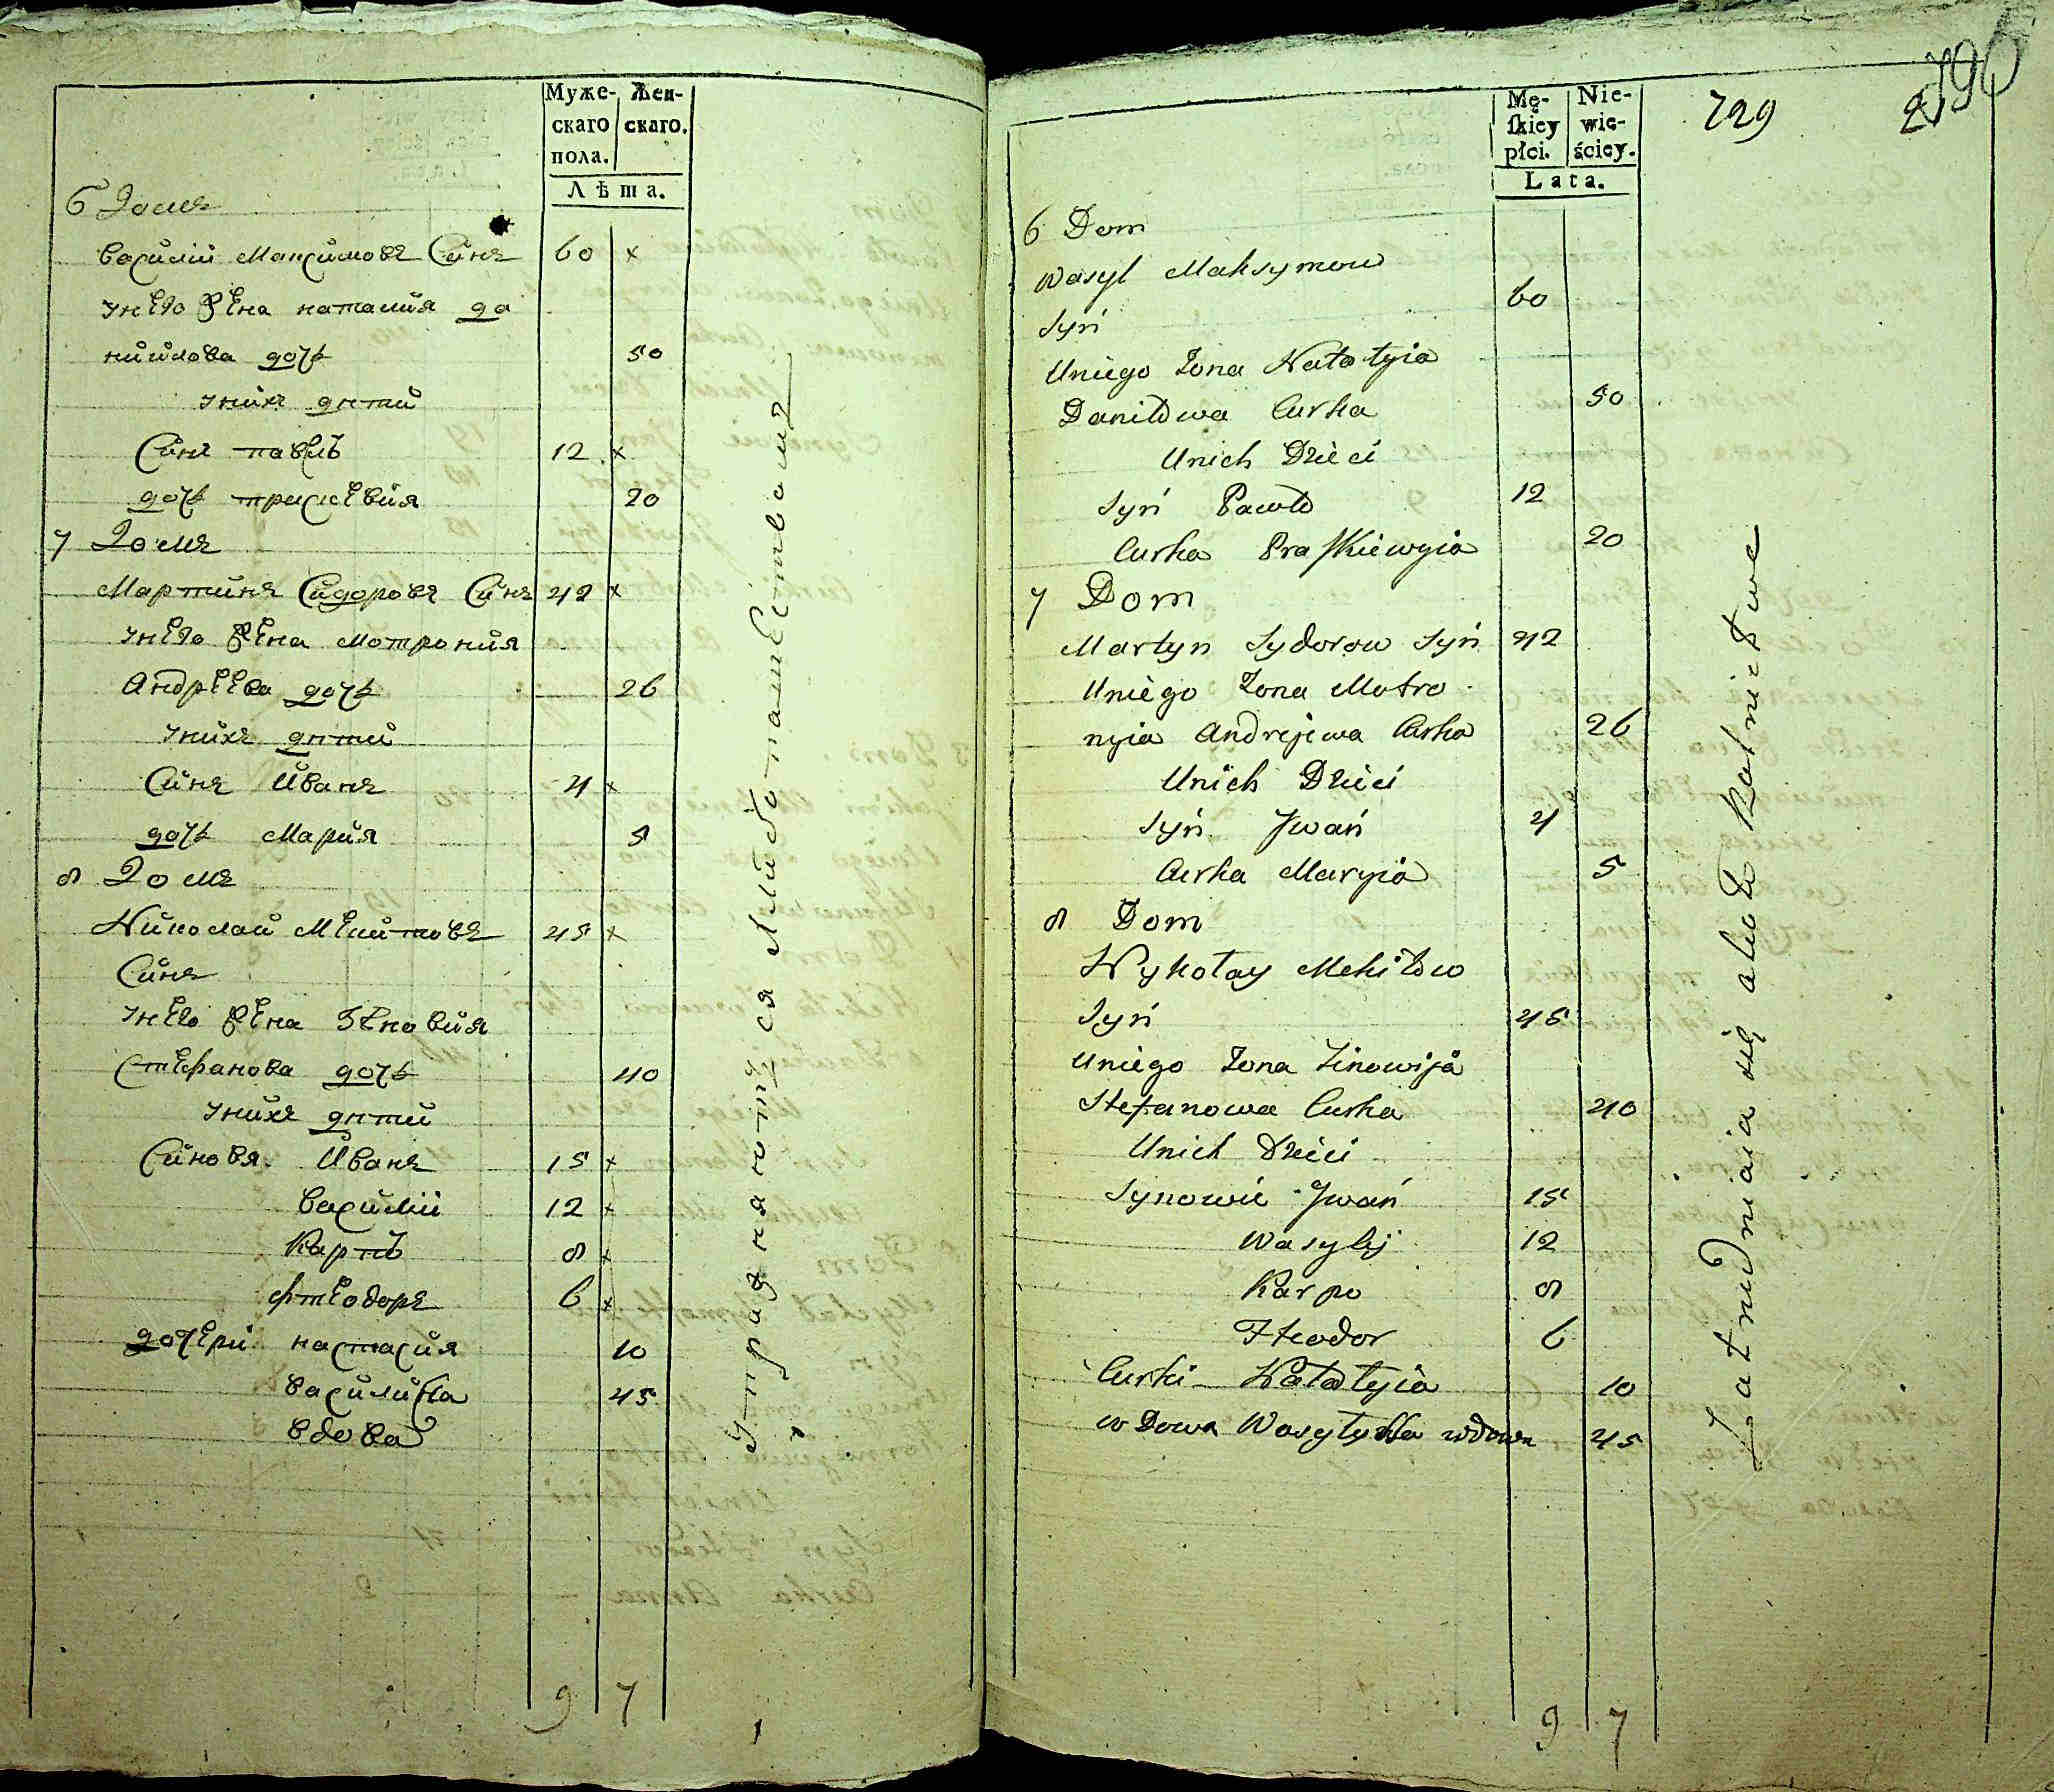 Муже- Жен-
скаго скаго.
пола.
Лѣта.
6 Домъ
Василий Максимовъ Синъ 60 x
Унего Жена наталия да
ниилова дочь 50
Унихъ дѣти
Синъ павлъ 12 x
дочь праскевия 20
7 Домъ
Мартинъ Сидоровъ Синъ 42 x
Унего Жена мотрония
Андреева дочь 26
Унихъ дѣти
Синъ Иванъ 4 x
дочь Мария 5
8 Домъ
Николай Мекитовъ 45 x
Синъ
Унего Жена Зѣновия
Стефанова дочь 40
Унихъ дѣти
Синовя Иванъ 15 x
Василий 12 x
Карпъ 8 x
Фтеодоръ 6 x
дочери настасия 10
Василиса 45
Вдова
9 7
Упражняются Хлибопашествомъ
729
790
Mę- Nie-
skiey wie-
płci. ściey.
Lata.
6 Dom
Wasyl Maksymow
Syń 60
Uniego Zona Natałyia
Daniłowa Curka 50
Unich Dzieci
Syń Pawło 12
Curka Praskiewyia 20
7 Dom
Martyn Sydorow Syń 42
Uniego Zona Motro
nyia Andrejewa Curka 26
Unich Dzieci
Syń Jwań 4
Curka Maryia 5
8 Dom
Nykołay Mekitow
Syń 45
Uniego Zona Zinowija
Stefanowa Curka 40
Unich Dzieci
Synowie Jwań 15
Wasylij 12
Karpo 8
Fteodor 6
Curki Natałyia 10
wDowa Wasyłyssa wdowa 45
9 7
Zatrudniaia się około Rolnictwa